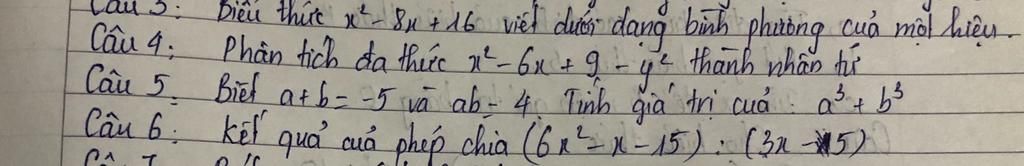 Câu 3: Biểu thức x² - 8x + 16 viết dưới dạng bình phương của một hiệu.
Câu 4: Phân tích đa thức x² - 6x + 9 - y² thành nhân tử
Câu 5: Biết a + b = -5 và ab = 4. Tính giá trị của: a³ + b³
Câu 6: Kết quả của phép chia (6x² - x - 15) : (3x - 5)